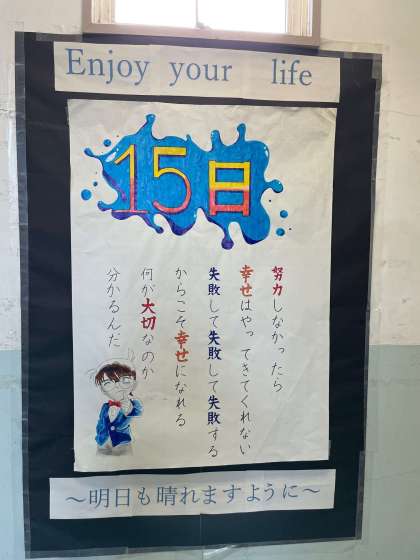 Enjoy your life
15日
努力しなかったら
幸せはやってきてくれない
失敗して失敗して失敗する
からこそ幸せになれる
何が大切なのか
分かるんだ
～明日も晴れますように～